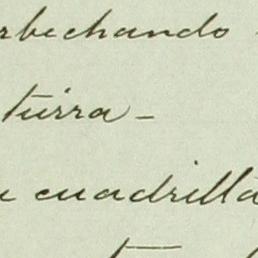 rbechando
tierra-
cuadrilla